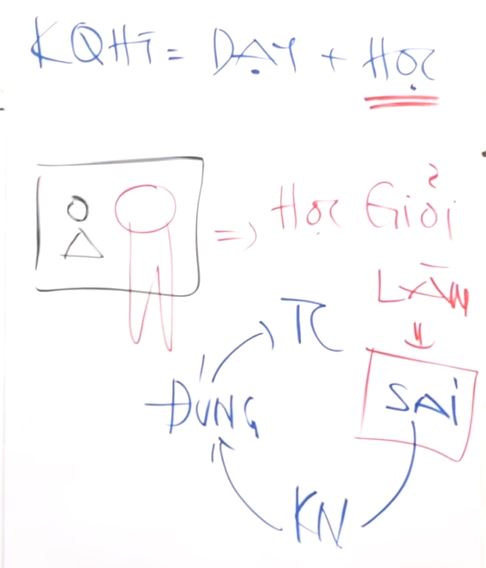 KQHT = DẠY + HỌC
=> Học Giỏi
LÀM
TC
ĐÚNG
SAI
KN